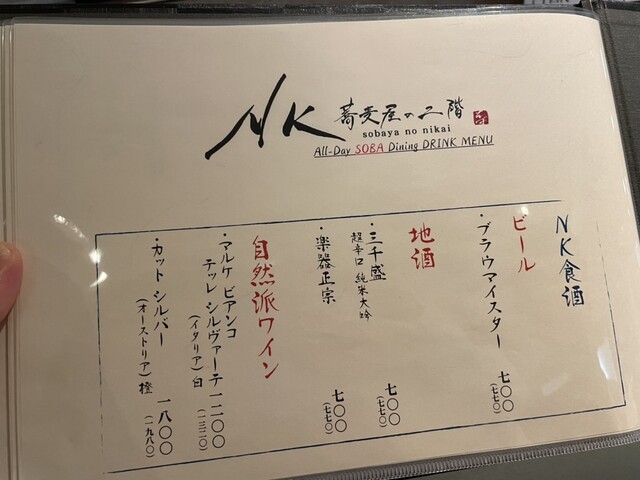 NK
蕎麦屋の二階
sobaya no nikai
All-Day SOBA Dining DRINK MENU
NK食酒
ビール
・ブラウマイスター 七〇〇
(七七〇)
地酒
・三千盛
超辛口 純米大吟 七〇〇
(七七〇)
・楽器正宗 七〇〇
(七七〇)
自然派ワイン
・マルケ ビアンコ
テッレ シルヴァーテ 一二〇〇
(イタリア)白 (一三二〇)
・カット シルバー 一八〇〇
(オーストリア)橙 (一九八〇)